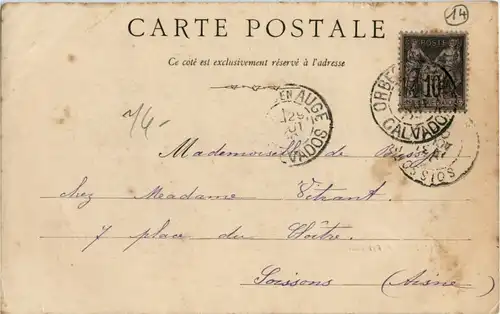 14
CARTE POSTALE
Ce côté est exclusivement réservé à l'adresse
POSTE
10
ORBEC
CALVADOS
EN AUGE
29
VADOS
SOISSONS
Mademoiselle de
chez Madame Vitrant
7 place du Cloître
Soissons (Aisne)